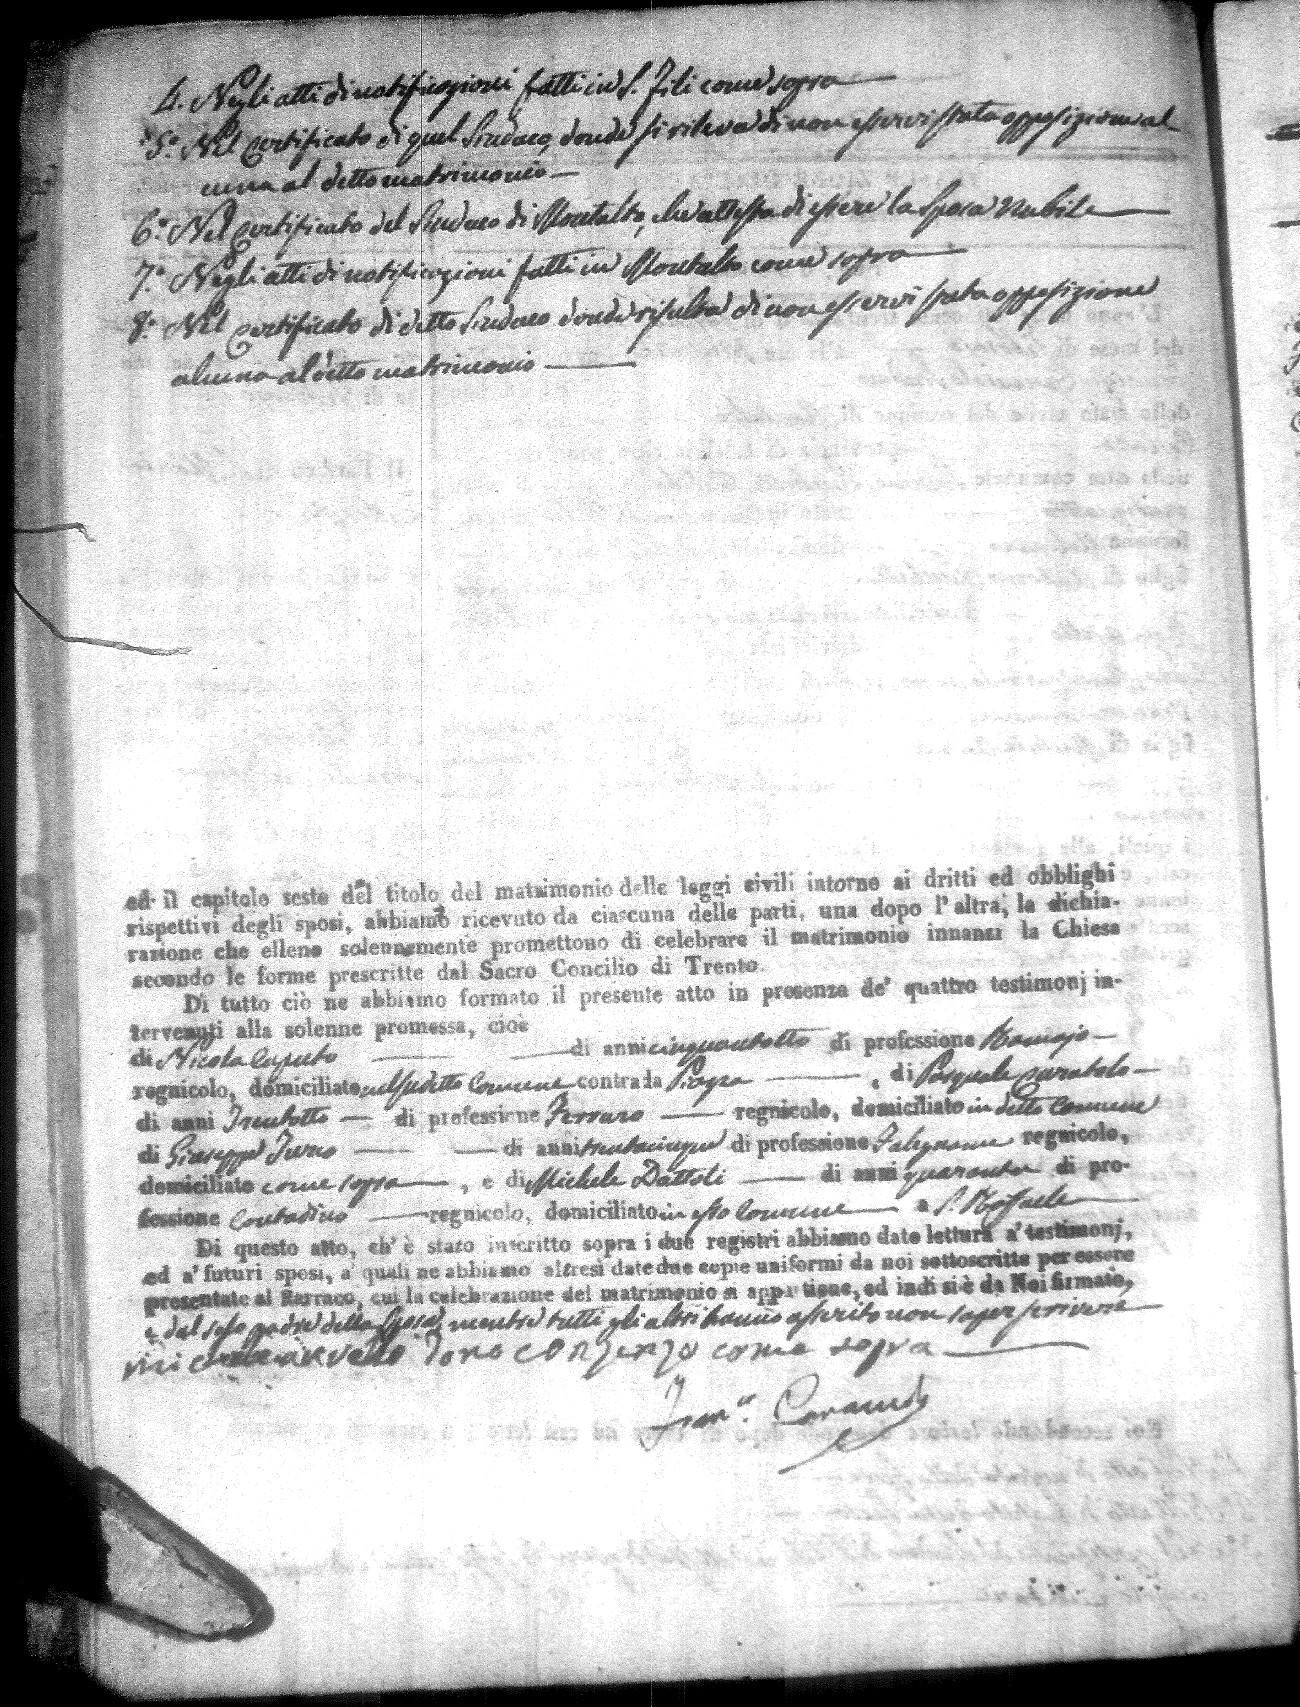 4. Negli atti di notificazioni fatti in S. Fili come sopra
5.° Nel Certificato di quel Sindaco, donde si rileva di non esservi stata opposizione al
cuna al detto matrimonio
6.° Nel Certificato del Sindaco di Montalto, che attesta di essere la Sposa Nubile
7.° Negli atti di notificazioni fatti in Montalto come sopra
8.° Nel Certificato di detto Sindaco donde risulta di non esservi stata opposizione
alcuna al detto matrimonio
ed il capitolo sesto del titolo del matrimonio delle leggi civili intorno ai dritti ed obblighi
rispettivi degli sposi, abbiamo ricevuto da ciascuna delle parti, una dopo l'altra, la dichia-
razione che elleno solennemente promettono di celebrare il matrimonio innanzi la Chiesa
secondo le forme prescritte dal Sacro Concilio di Trento.
Di tutto ciò ne abbiamo formato il presente atto in presenza de' quattro testimonj in-
tervenuti alla solenne promessa, cioè
di Nicola Caputo di anni cinquantotto di professione
regnicolo, domiciliato nel sudetto Comune contrada , di Pasquale
di anni Trentotto di professione Ferraro regnicolo, domiciliato in detto Comune
di Giuseppe di anni trentacinque di professione Falegname regnicolo,
domiciliato come sopra , e di Michele Dattoli di anni quaranta di pro-
fessione Contadino regnicolo, domiciliato in esso Comune a S. Raffaele
Di questo atto, ch' è stato inscritto sopra i due registri abbiamo dato lettura a' testimonj,
ed a' futuri sposi, a' quali ne abbiamo altresì date due copie uniformi da noi sottoscritte per essere
presentate al Parraco, cui la celebrazione del matrimonio si appartiene, ed indi si è da Noi firmato,
e dal solo padre della Sposa, mentre tutti gli altri hanno asserito non saper scrivere
come sopra
Fran.co